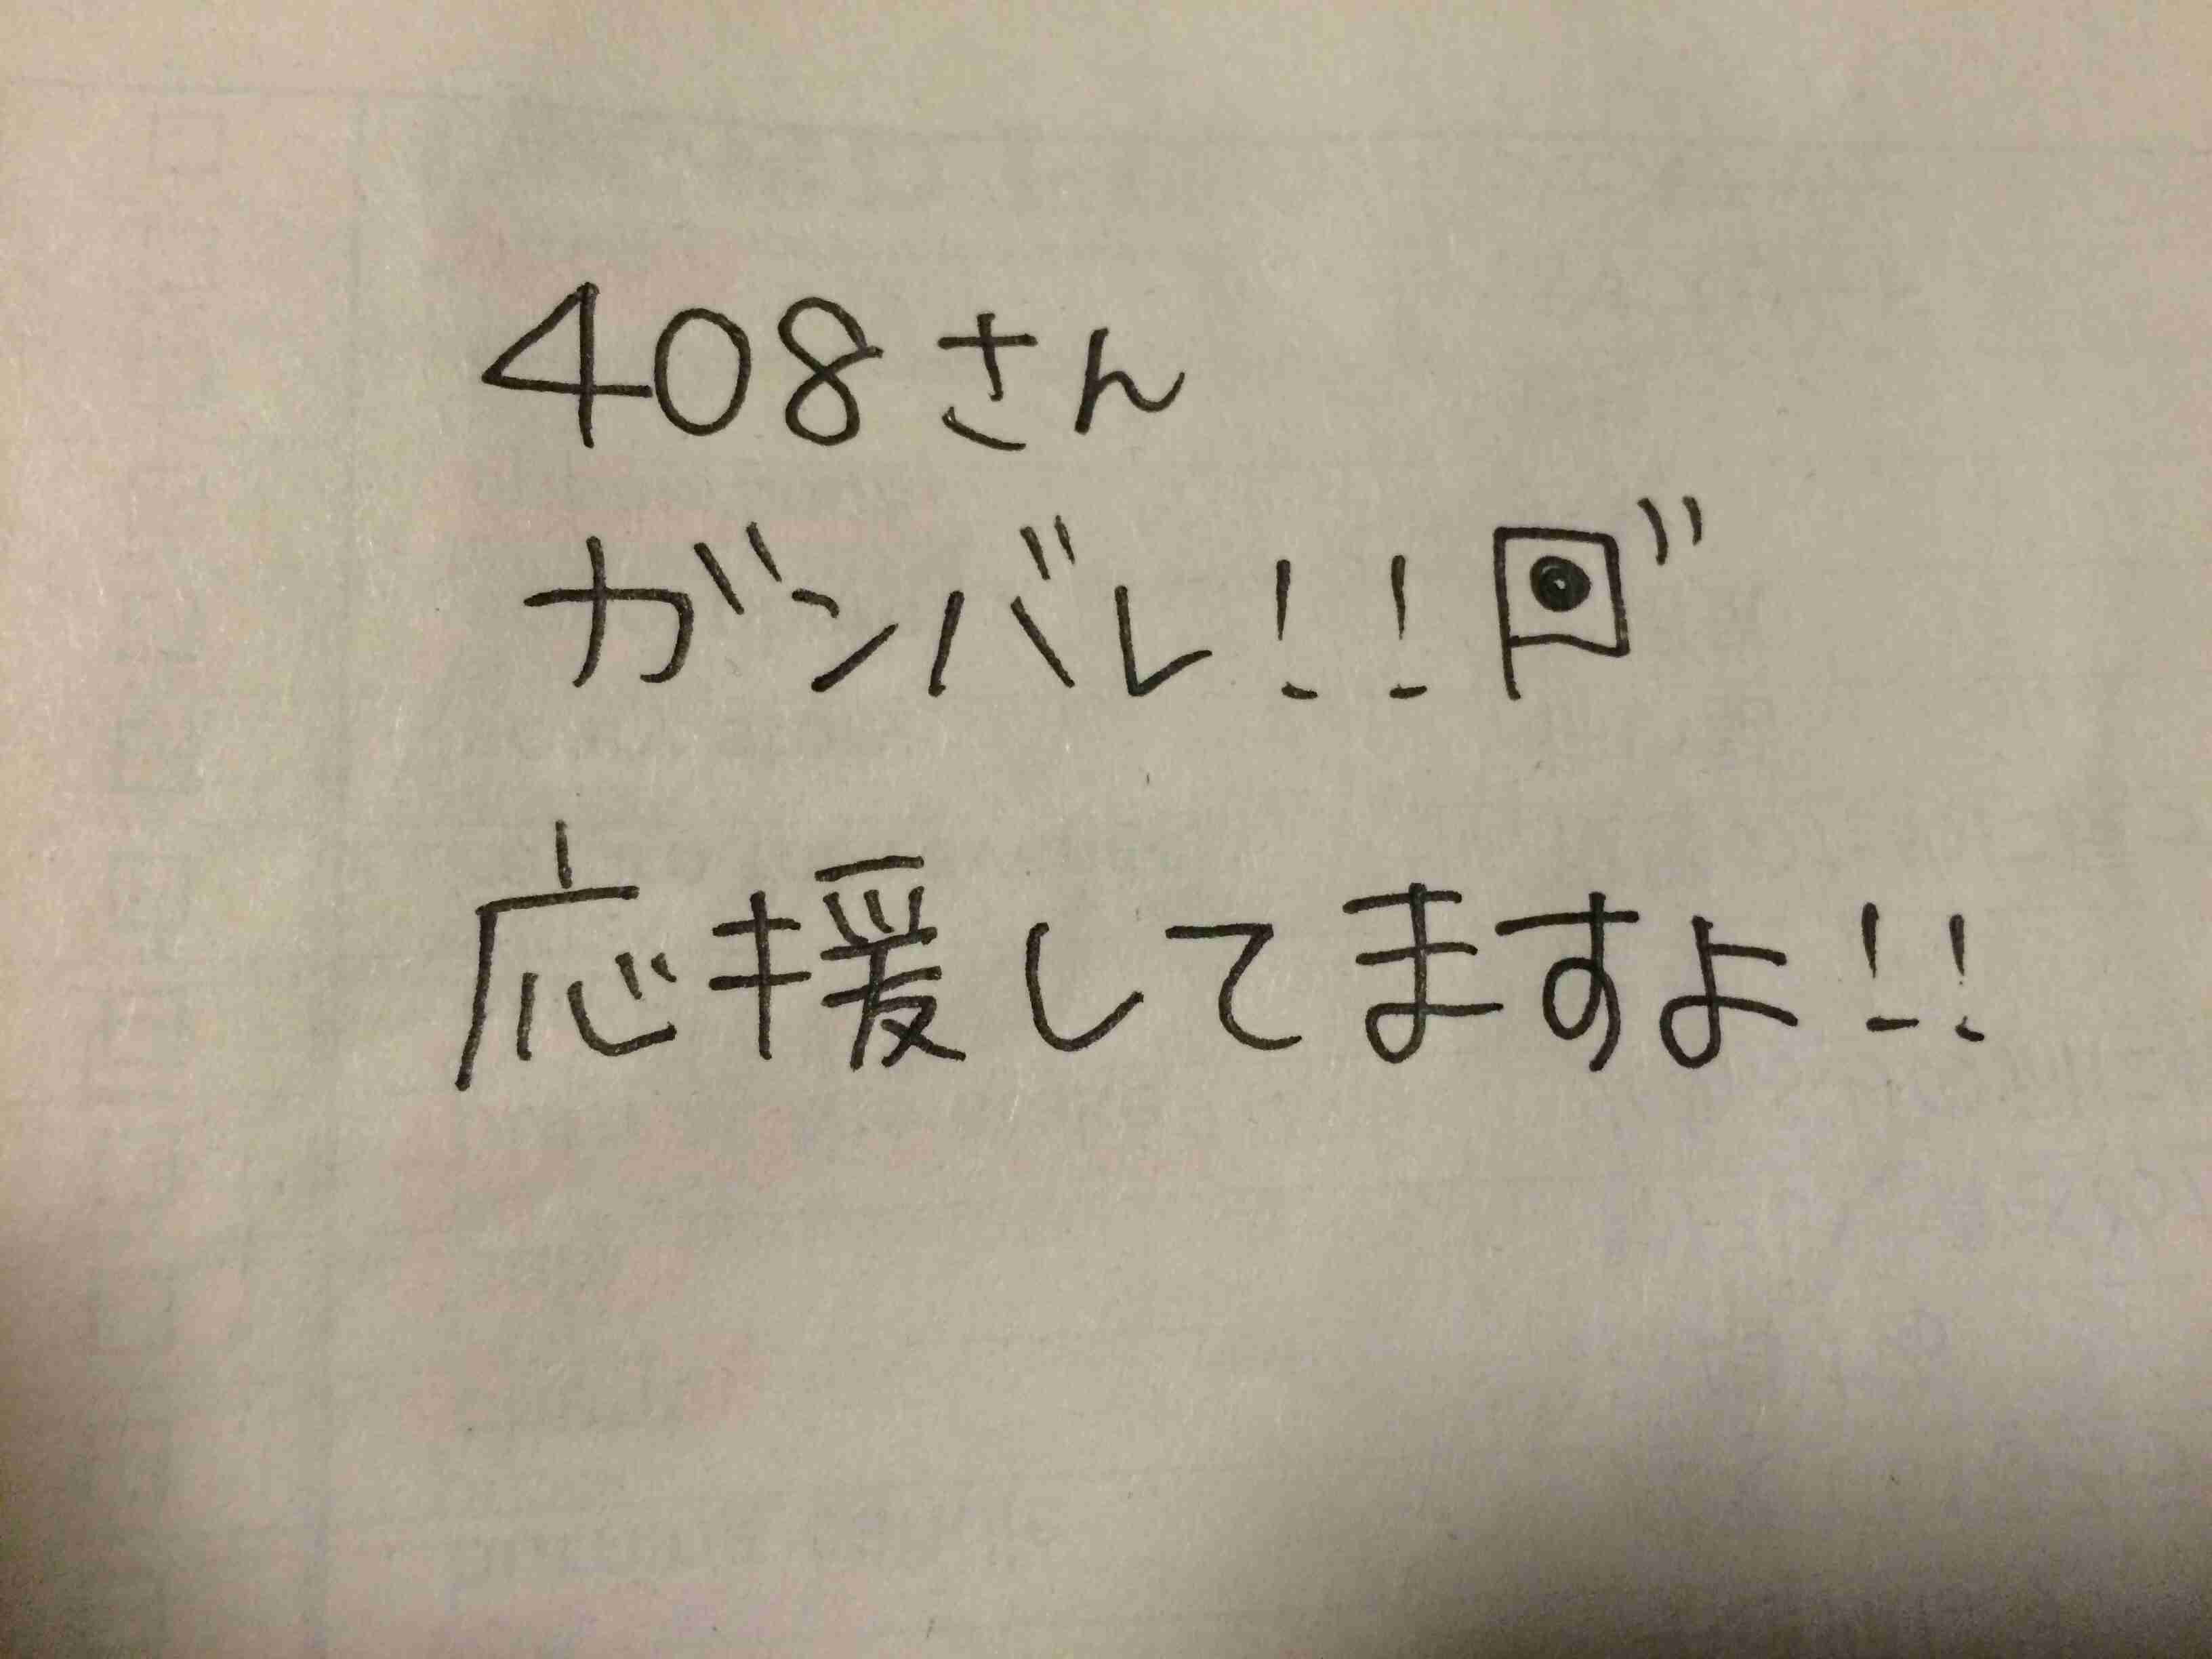 408さん
ガンバレ!!
応援してますよ!!